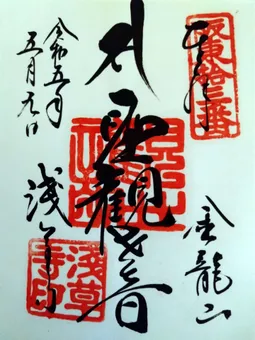 奉拝
坂東拾三番
金龍山
聖観世音
浅草寺
浅草
寺印
令和五年
五月九日